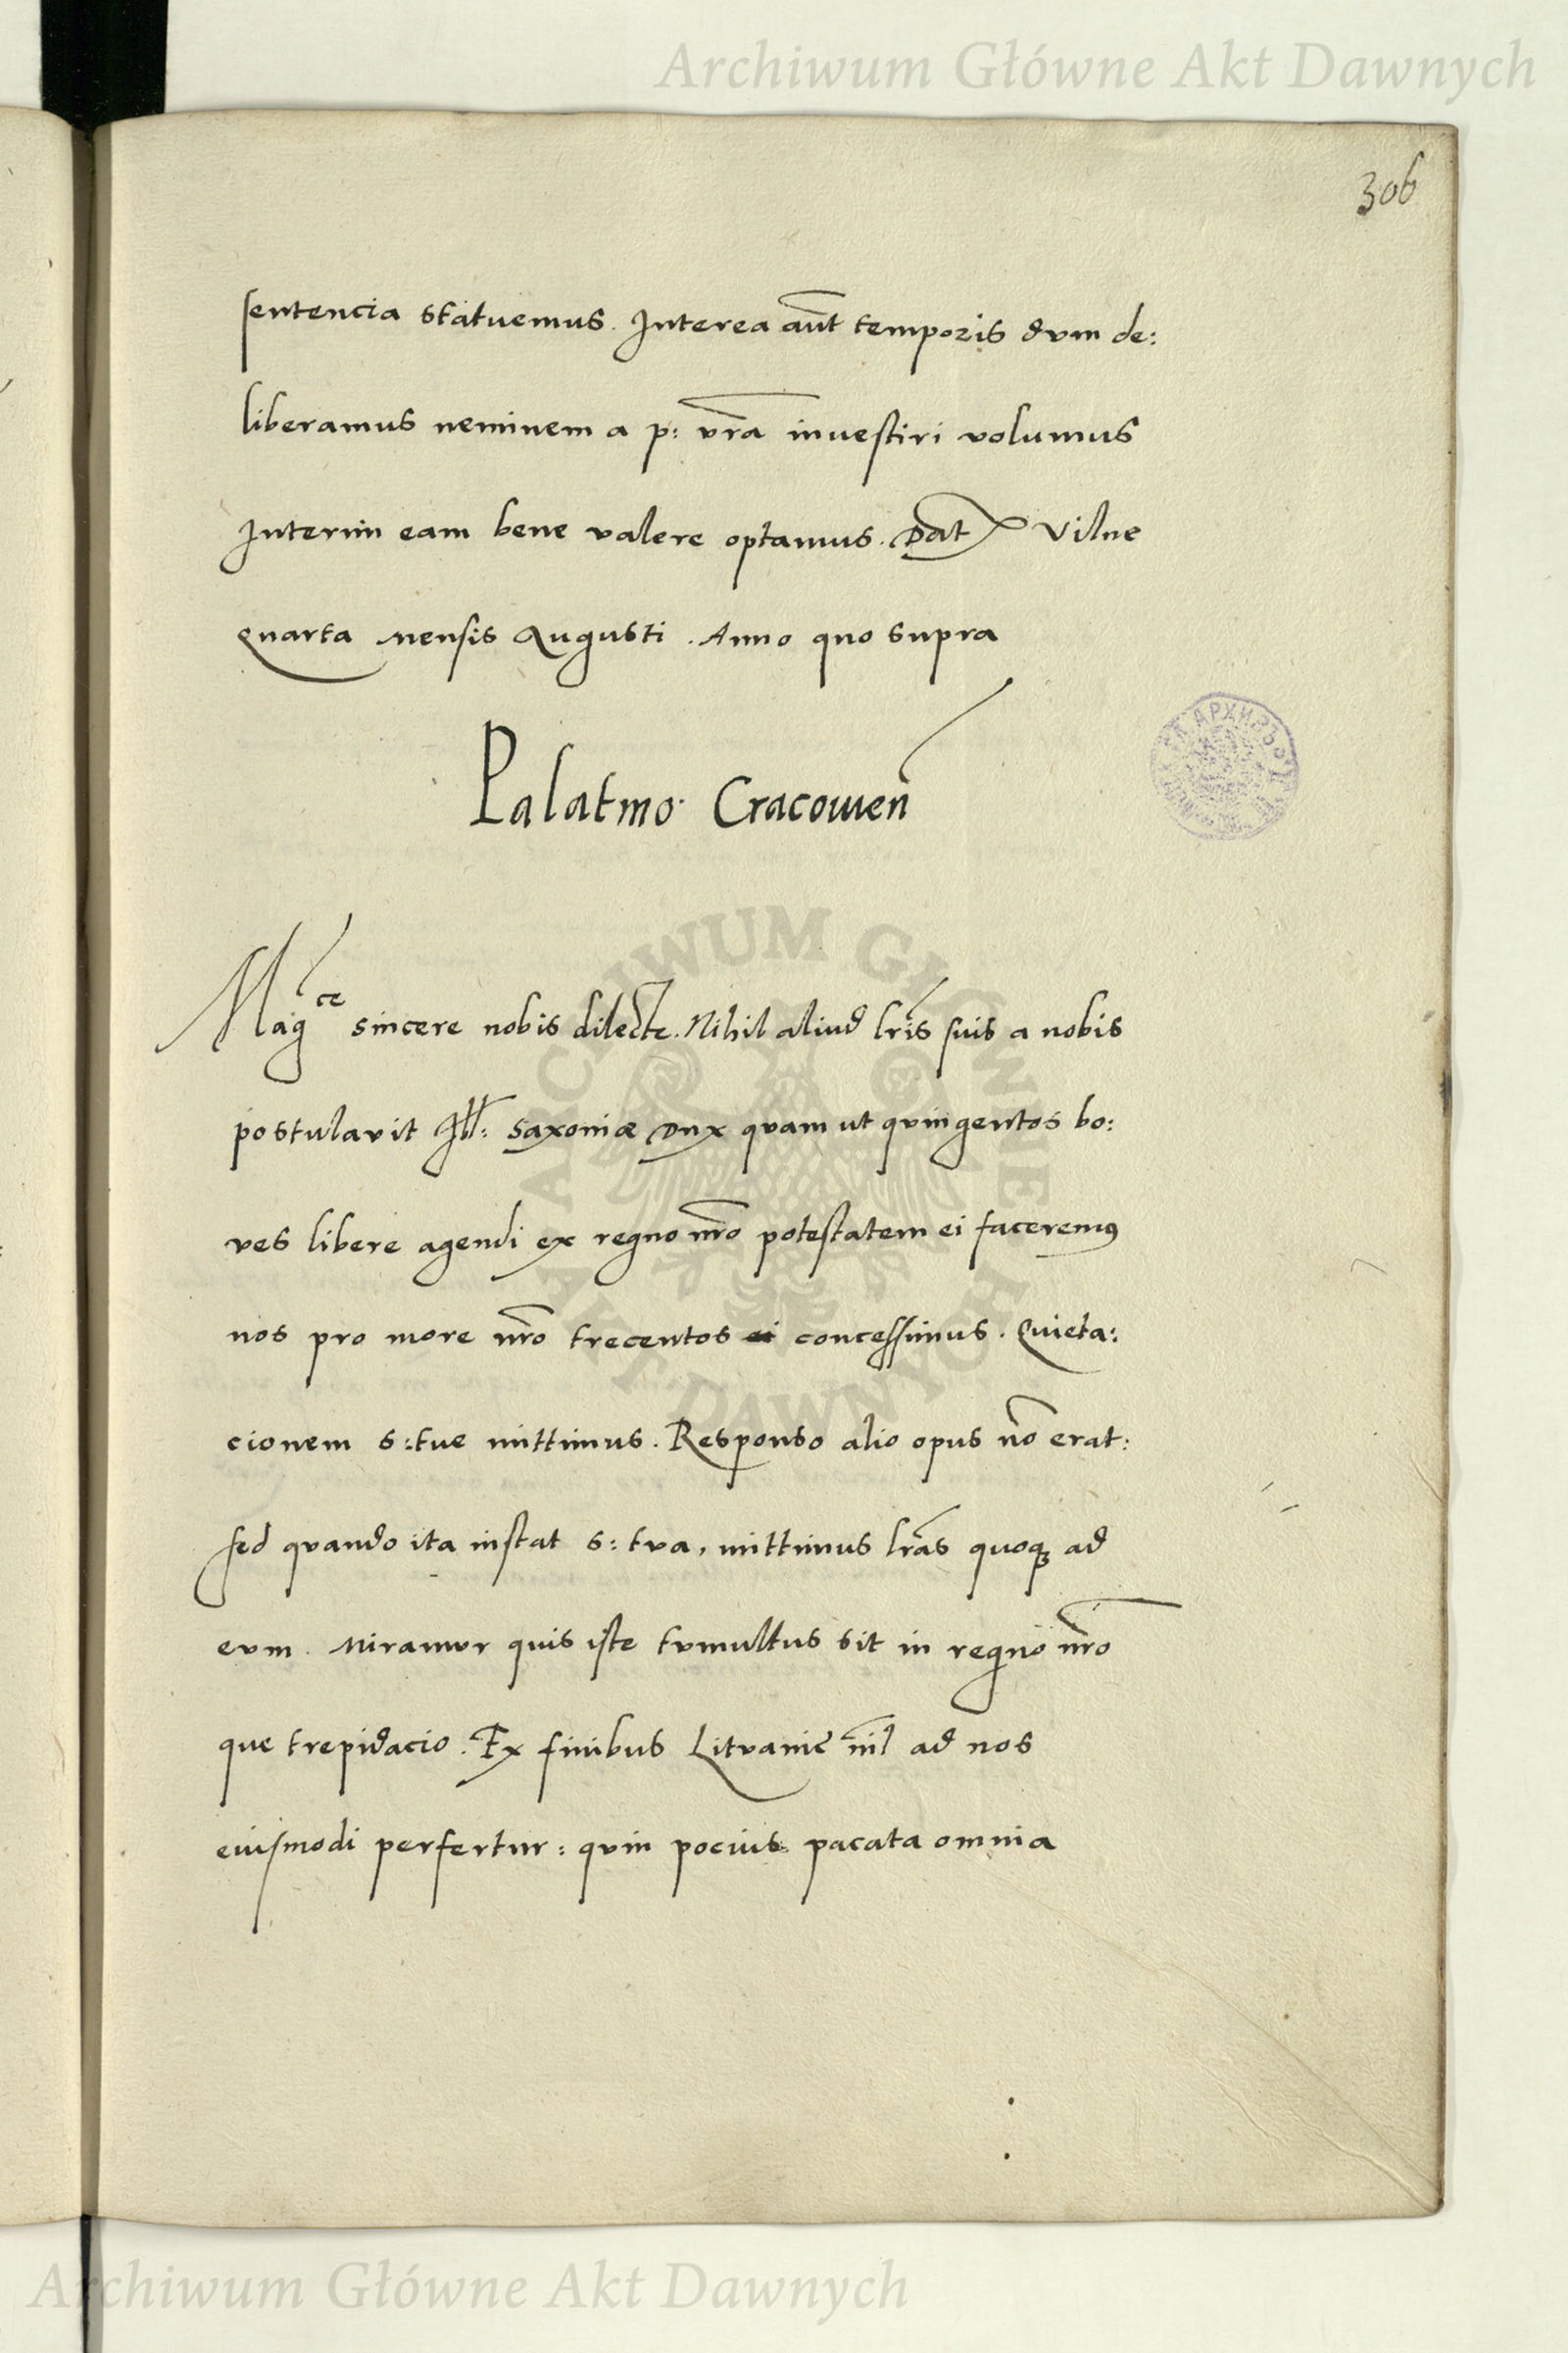 Archiwum Główne Akt Dawnych
306
sentencia statuemus. Interea aūt temporis dum de:
liberamus neminem a p: vr̄a investiri volumus
Interim eam bene valere optamus. Dat Vilne
quarta mensis Augusti. Anno quo supra
Palatino Cracovien̄
Mag̃ce sincere nobis dilecte. Nihil aliud lr̄is suis a nobis
postulavit Ill: Saxoniæ Dux quam ut quingentos bo:
ves libere agendi ex regno nr̄o potestatem ei faceremus
nos pro more nr̄o trecentos ei concessimus. Quieta:
cionem s: tue mittimus. Responso alio opus nō erat:
sed quando ita instat s: tua, mittimus lr̄as quoqꝫ ad
eum. Miramur quis iste tumultus sit in regno nr̄o
que trepidacio. Ex finibus Lituanie nīl ad nos
eiusmodi perfertur: quin pocius pacata omnia
ARCHIWUM GŁÓWNE
AKT DAWNYCH
Archiwum Główne Akt Dawnych